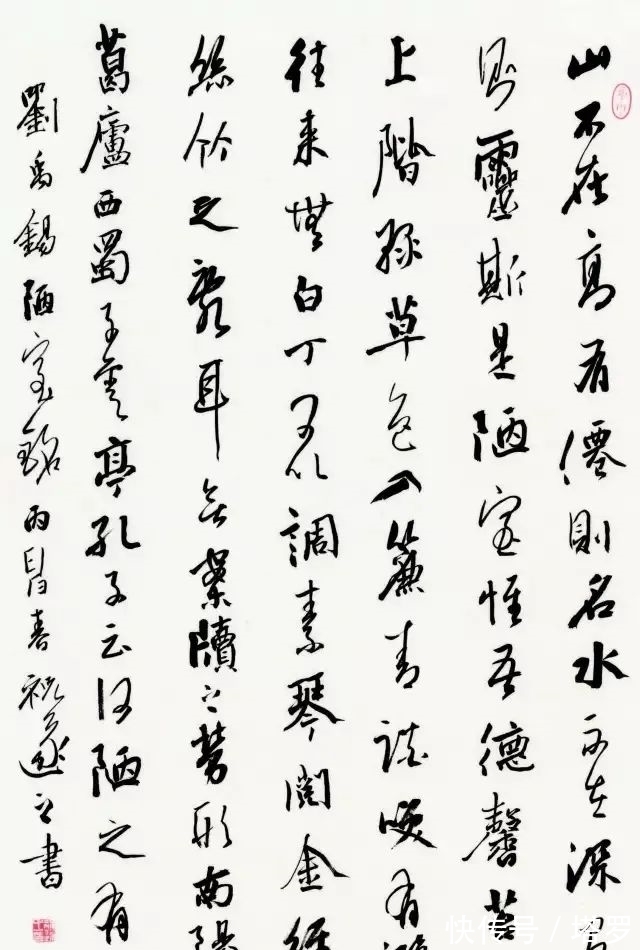 山不在高有僊則名水不在深
則靈斯是陋室惟吾德馨苔
上階緑草色入簾青談咲有鴻
往来無白丁可以調素琴閱金經
絲竹之亂耳無案牘之勞形南陽
葛廬西蜀子雲亭孔子云何陋之有
劉禹錫陋室銘春祝遂之書
快传号 / 塔罗